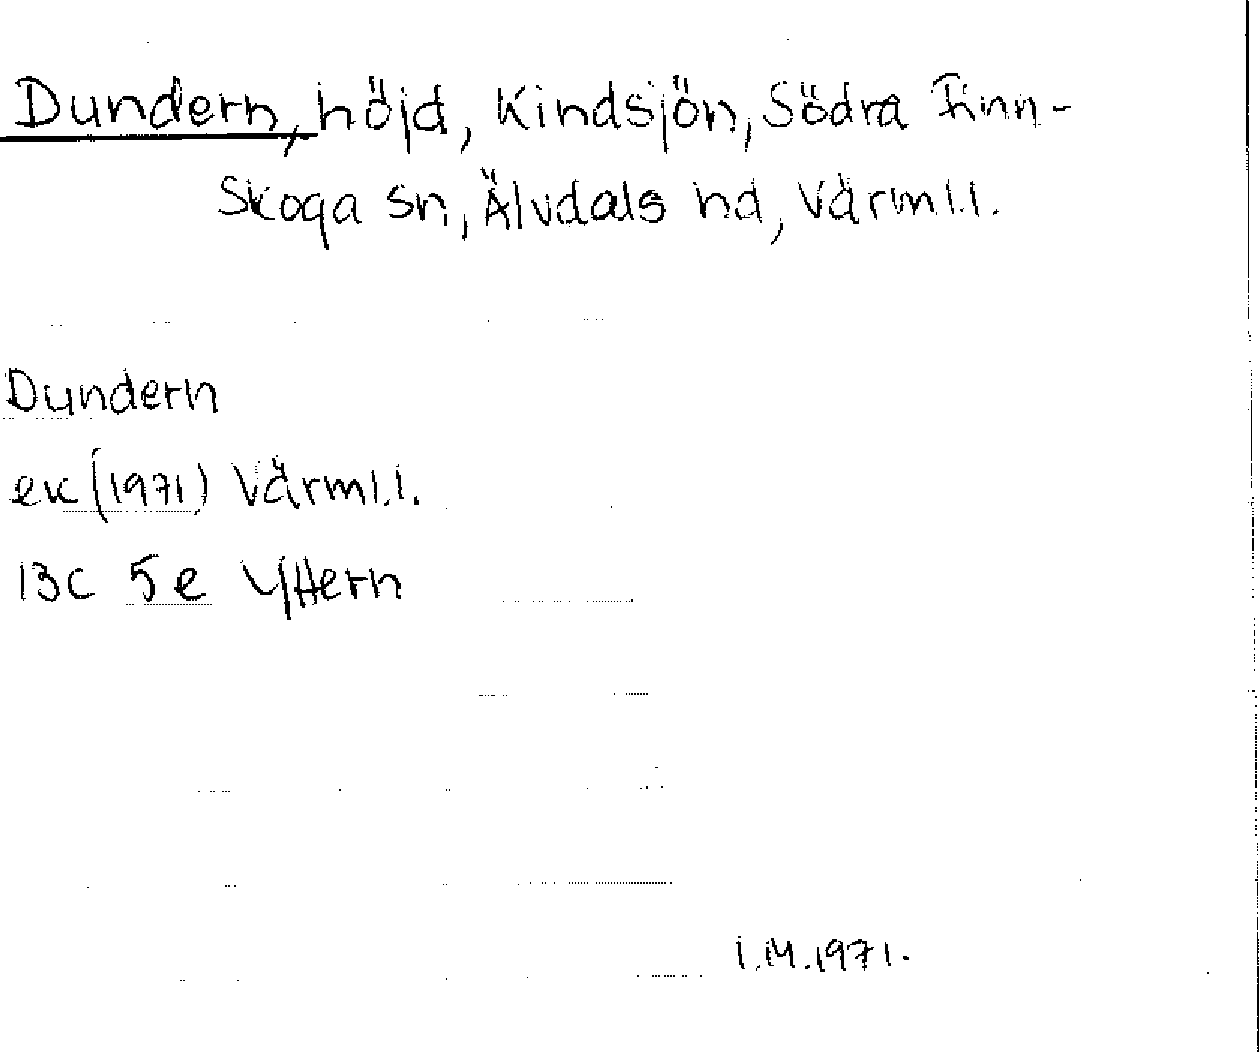 Dundern, höjd, Kindsjön, Södra Finn-
Skoga sn, Älvdals hd, Värml.l.
Dundern
ek (1971) Värml.l.
13C 5e Yttern
I.M.1971.